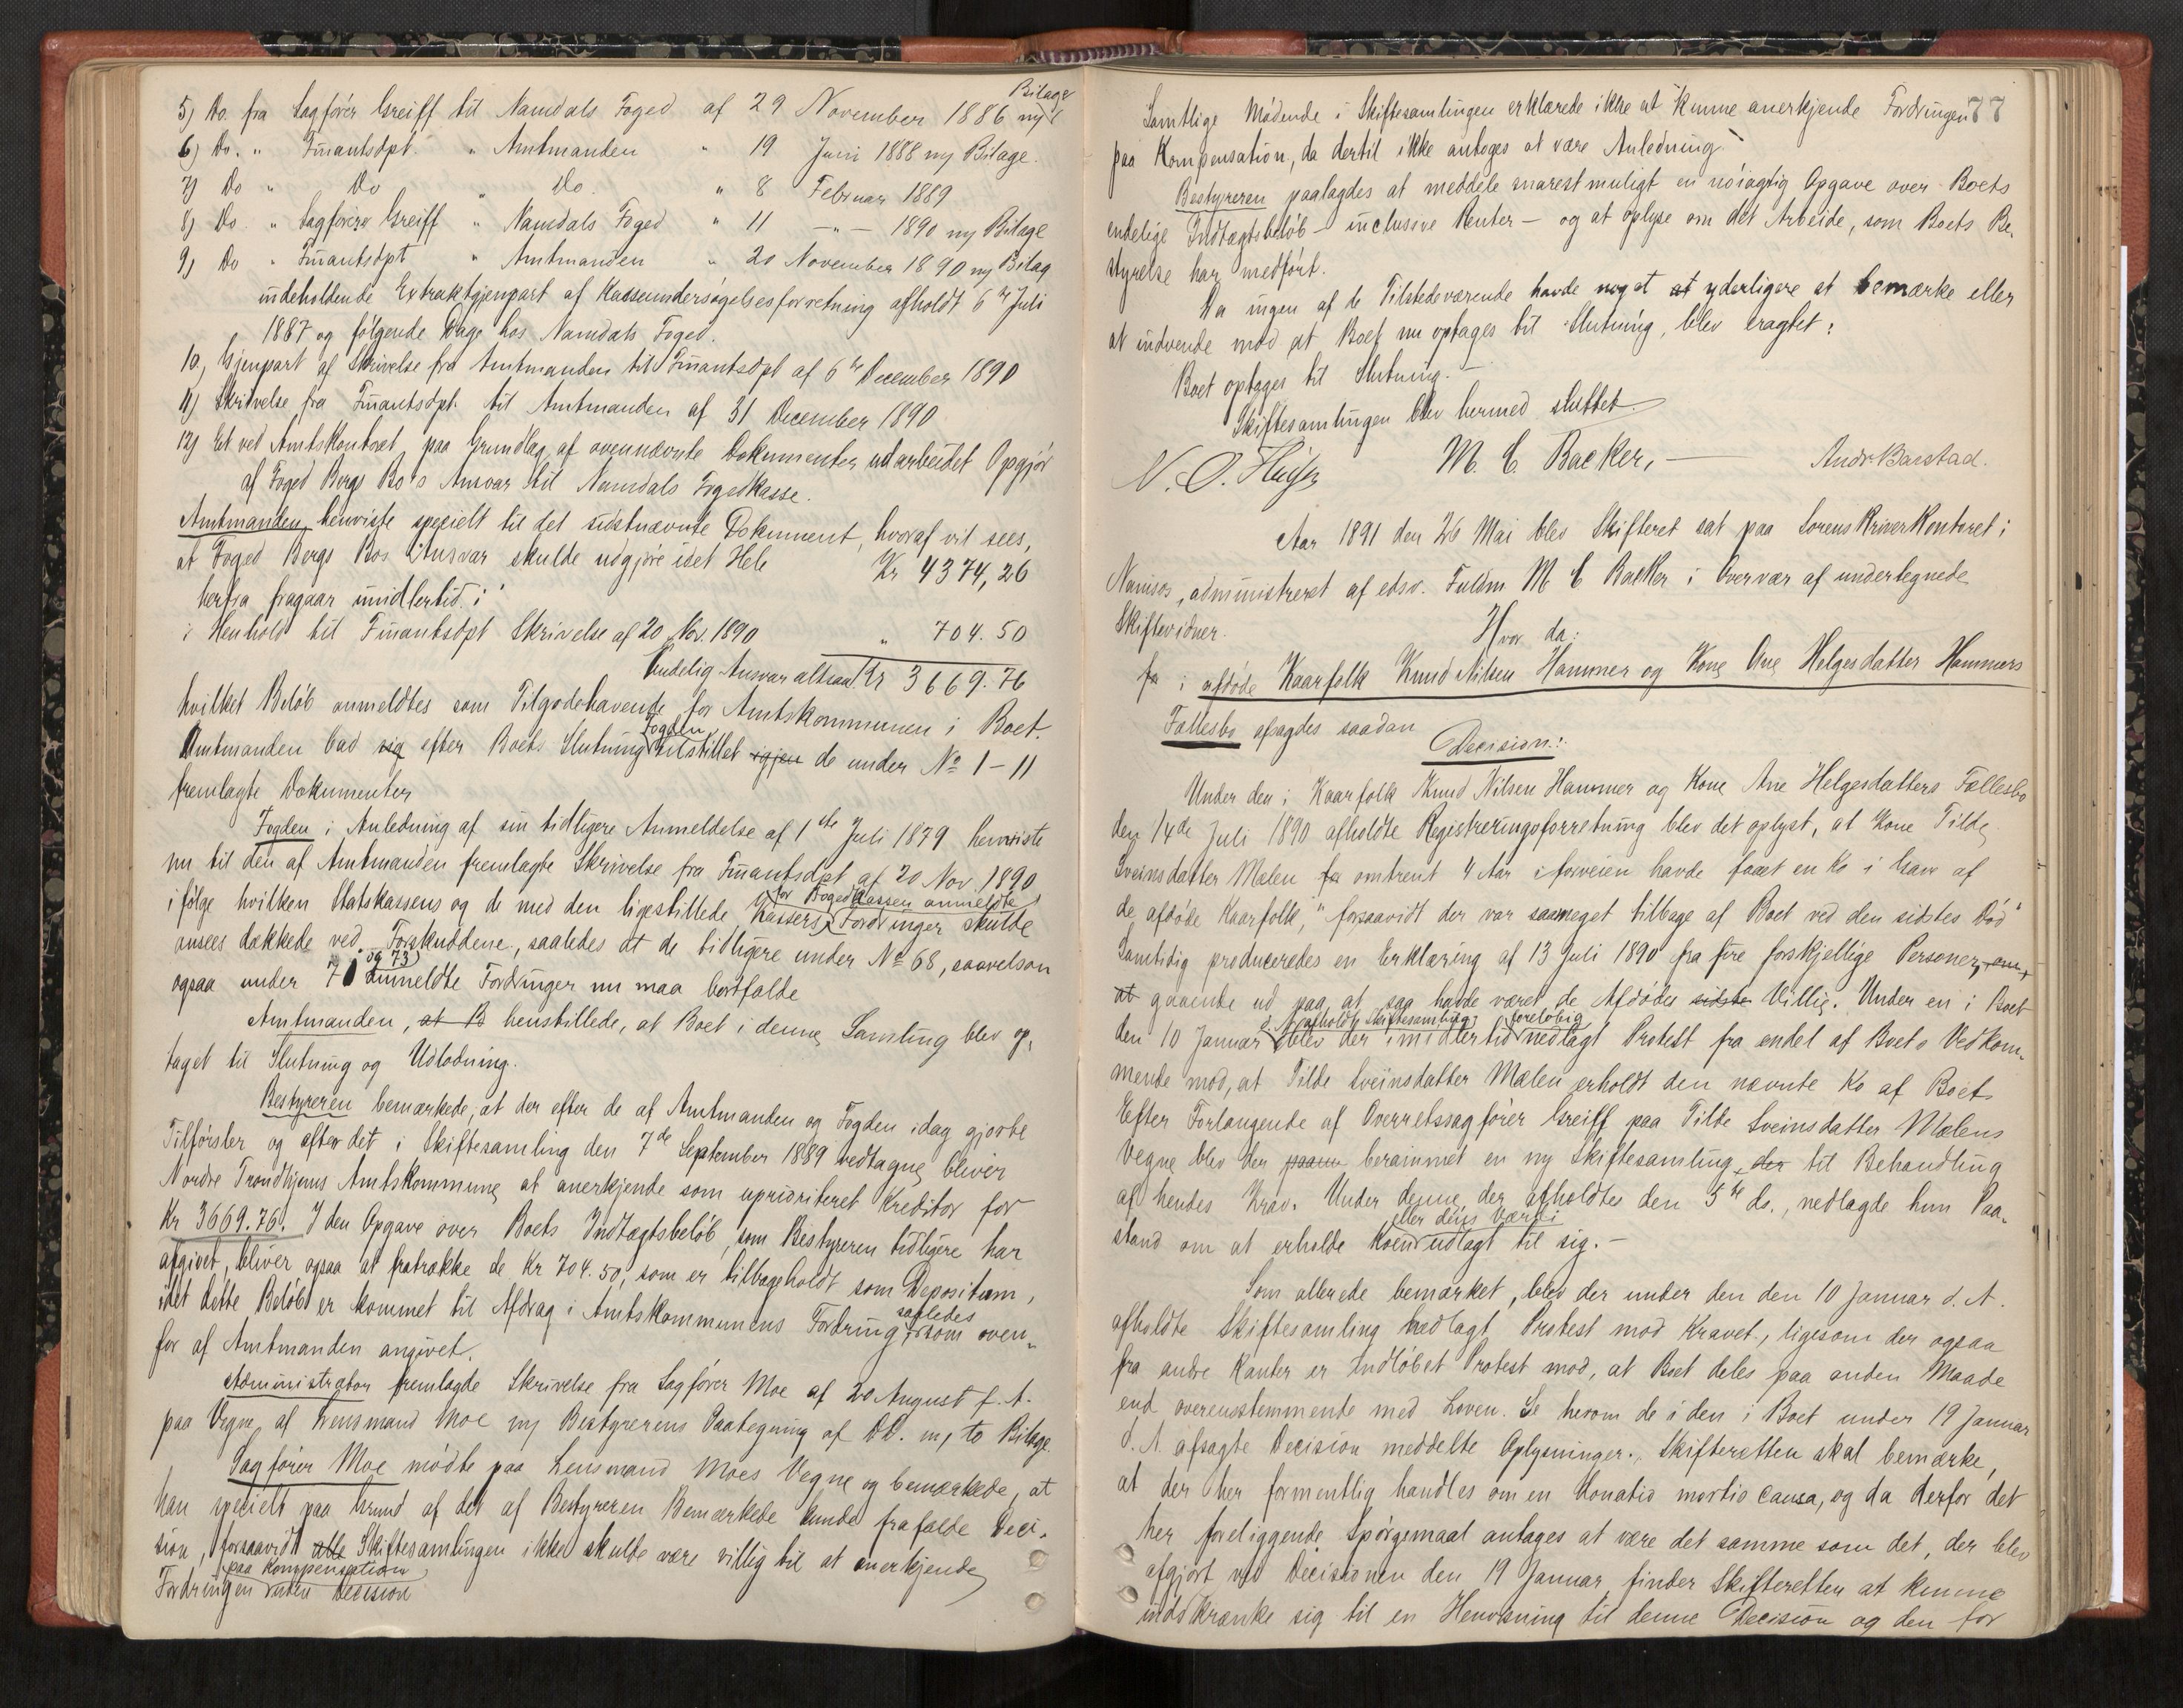 Bilage
5) Do. fra Sagfører Greiff til Namdals Foged af 29 November 1886 m/
6) Do. " Finantsdpt. " Amtmanden " 19 Juni 1888 m/ Bilage.
7) Do " Do " Do. " 8 Februar 1889
8) Do. " Sagfører Greiff " Namdals Foged " 11 -"- 1890 m/ Bilage
9) Do " Finantsdpt " Amtmanden " 20 November 1890 m/ Bilag
indeholdende Extraktgjenpart af Kasseundersøgelsesforretning afholdt 6te Juli
1887 og følgende Dage hos Namdals Foged.
10) Gjenpart af Skrivelse fra Amtmanden til Finantsdpt af 6te December 1890
11) Skrivelse fra Finantsdpt. til Amtmanden af 31 December 1890
12) Et ved Amtskontoret paa Grundlag af ovennævnte Dokumenter udarbeidet Opgjør
af Foged Bergs Bo's Ansvar til Namdals Fogedkasse.
Amtmanden henviste specielt til det sidstnævnte Dokument, hvoraf vil sees,
at Foged Bergs Bos Ansvar skulde udgjøre idet Hele Kr 4374,26
herfra fragaar imidlertid i
i Henhold til Finantsdpt Skrivelse af 20 Nov. 1890 " 704.50
Endelig Ansvar altsaa Kr 3669.76
hvilket Beløb anmeldtes som Tilgodehavende for Amtskommunen i Boet.
Fogden
Amtmanden bad sig efter Boets Slutning tilstillet igjen de under No 1-11
fremlagte Dokumenter
Fogden i Anledning af sin tidligere Anmeldelse af 1ste Juli 1879 henviste
nu til den af Amtmanden fremlagte Skrivelse fra Finantsdpt af 20 Nov. 1890
for Fogedkassen anmeldte
ifølge hvilken Statskassens og de med den ligestillede Kassers Fordringer skulde
ansees dækkede ved Forskuddene, saaledes at de tidligere under No 68, saavelsom
og 73
ogsaa under 71 anmeldte Fordringer nu maa bortfalde
Amtmanden, at B henstillede, at Boet i denne Samling blev op-
taget til Slutning og Udlodning.
Bestyreren bemærkede, at der efter de af Amtmanden og Fogden idag gjorte
Tilførsler og efter det i Skiftesamling den 7de September 1889 vedtagne bliver
Nordre Trondhjems Amtskommune at anerkjende som uprioriteret Kreditor for
Kr 3669.76. I den Opgave over Boets Indtægtsbeløb, som Bestyreren tidligere har
afgivet, bliver ogsaa at fratrække de Kr 704.50, som er tilbageholdt som Depositum,
idet dette Beløb er kommet til Afdrag i Amtskommunens Fordring, saaledes som oven-
for af Amtmanden angivet.
Administrator fremlagde Skrivelse fra Sagfører Moe af 20 August f. A.
paa Vegne af Lensmand Moe m/ Bestyrerens Paategning af DD. m/ to Bilage.
Sagfører Moe mødte paa Lensmand Moes Vegne og bemærkede, at
han specielt paa Grund af det af Bestyreren Bemærkede kunde frafalde Deci-
sion, forsaavidt alle Skiftesamlingen ikke skulde være villig til at anerkjende
paa Kompensation
Fordringen uden Decision
77
Samtlige Mødende i Skiftesamlingen erklærede ikke at kunne anerkjende Fordringen
paa Kompensation, da dertil ikke antoges at være Anledning.
Bestyreren paalagdes at meddele snarest muligt en nøiagtig Opgave over Boets
endelige Indtægtsbeløb - inclusive Renter - og at oplyse om det Arbeide, som Boets Be-
styrelse har medført.
Da ingen af de Tilstedeværende havde noget at yderligere at bemærke eller
at indvende mod at Boet nu optages til Slutning, blev eragtet:
Boet optages til Slutning.-
Skiftesamlingen blev hermed sluttet.
M. C. Backer, Andr. Barstad.
Aar 1891 den 26 Mai blev Skifteret sat paa Sorenskriverkontoret i
Namsos, administreret af edsv. Fuldm M C Backer i Overvær af undertegnede
Skiftevidner.
Hvor da:
fa i afdøde Kaarfolk Knud Nilsen Hammer og Kone Ane Helgesdatter Hammers
Fællesbo afsagdes saadan
Decision:.
Under den i Kaarfolk Knud Nilsen Hammer og Kone Ane Helgesdatters Fællesbo
den 14de Juli 1890 afholdte Registreringsforretning blev det oplyst, at Kone Tilde
Sveinsdatter Mælen for omtrent 4 Aar iforveien havde faaet en Ko i Gave af
de afdøde Kaarfolk, "forsaavidt der var saameget tilbage af Boet ved den sidstes Død"
Samtidig produceredes en Erklæring af 13 Juli 1890 fra fire forskjellige Personer, om,
at gaaende ud paa, at saa havde været de Afdødes sidste Villie. Under en i Boet
afholdt Skiftesamling foreløbig
den 10 Januar blev der imidlertid nedlagt Protest fra endel af Boets Vedkom-
mende mod, at Tilde Sveinsdatter Mælen erholdt den nævnte Ko af Boet.
Efter Forlangende af Overretssagfører Greiff paa Tilde Sveinsdatter Mælens
Vegne blev der paany berammet en ny Skiftesamling, der til Behandling
af hendes Krav. Under denne, der afholdtes den 5te ds., nedlagde hun Paa-
eller dens Værdi
stand om at erholde Koen udlagt til sig.-
Som allerede bemærket, blev der under den den 10 Januar d. A.
afholdte Skiftesamling nedlagt Protest mod Kravet, ligesom der ogsaa
fra andre Kanter er indløbet Protest mod, at Boet deles paa anden Maade
end overensstemmende med Loven. Se herom de i den i Boet under 19 Januar
d. A. afsagte Decision meddelte Oplysninger. Skifteretten skal bemærke,
at der her formentlig handles om en donatio mortis causa, og da derfor det
her foreliggende Spørgsmaal antages at være det samme som det, der blev
afgjort ved Decisionen den 19 Januar, finder Skifteretten at kunne
indskrænke sig til en Henvisning til denne Decision og den for